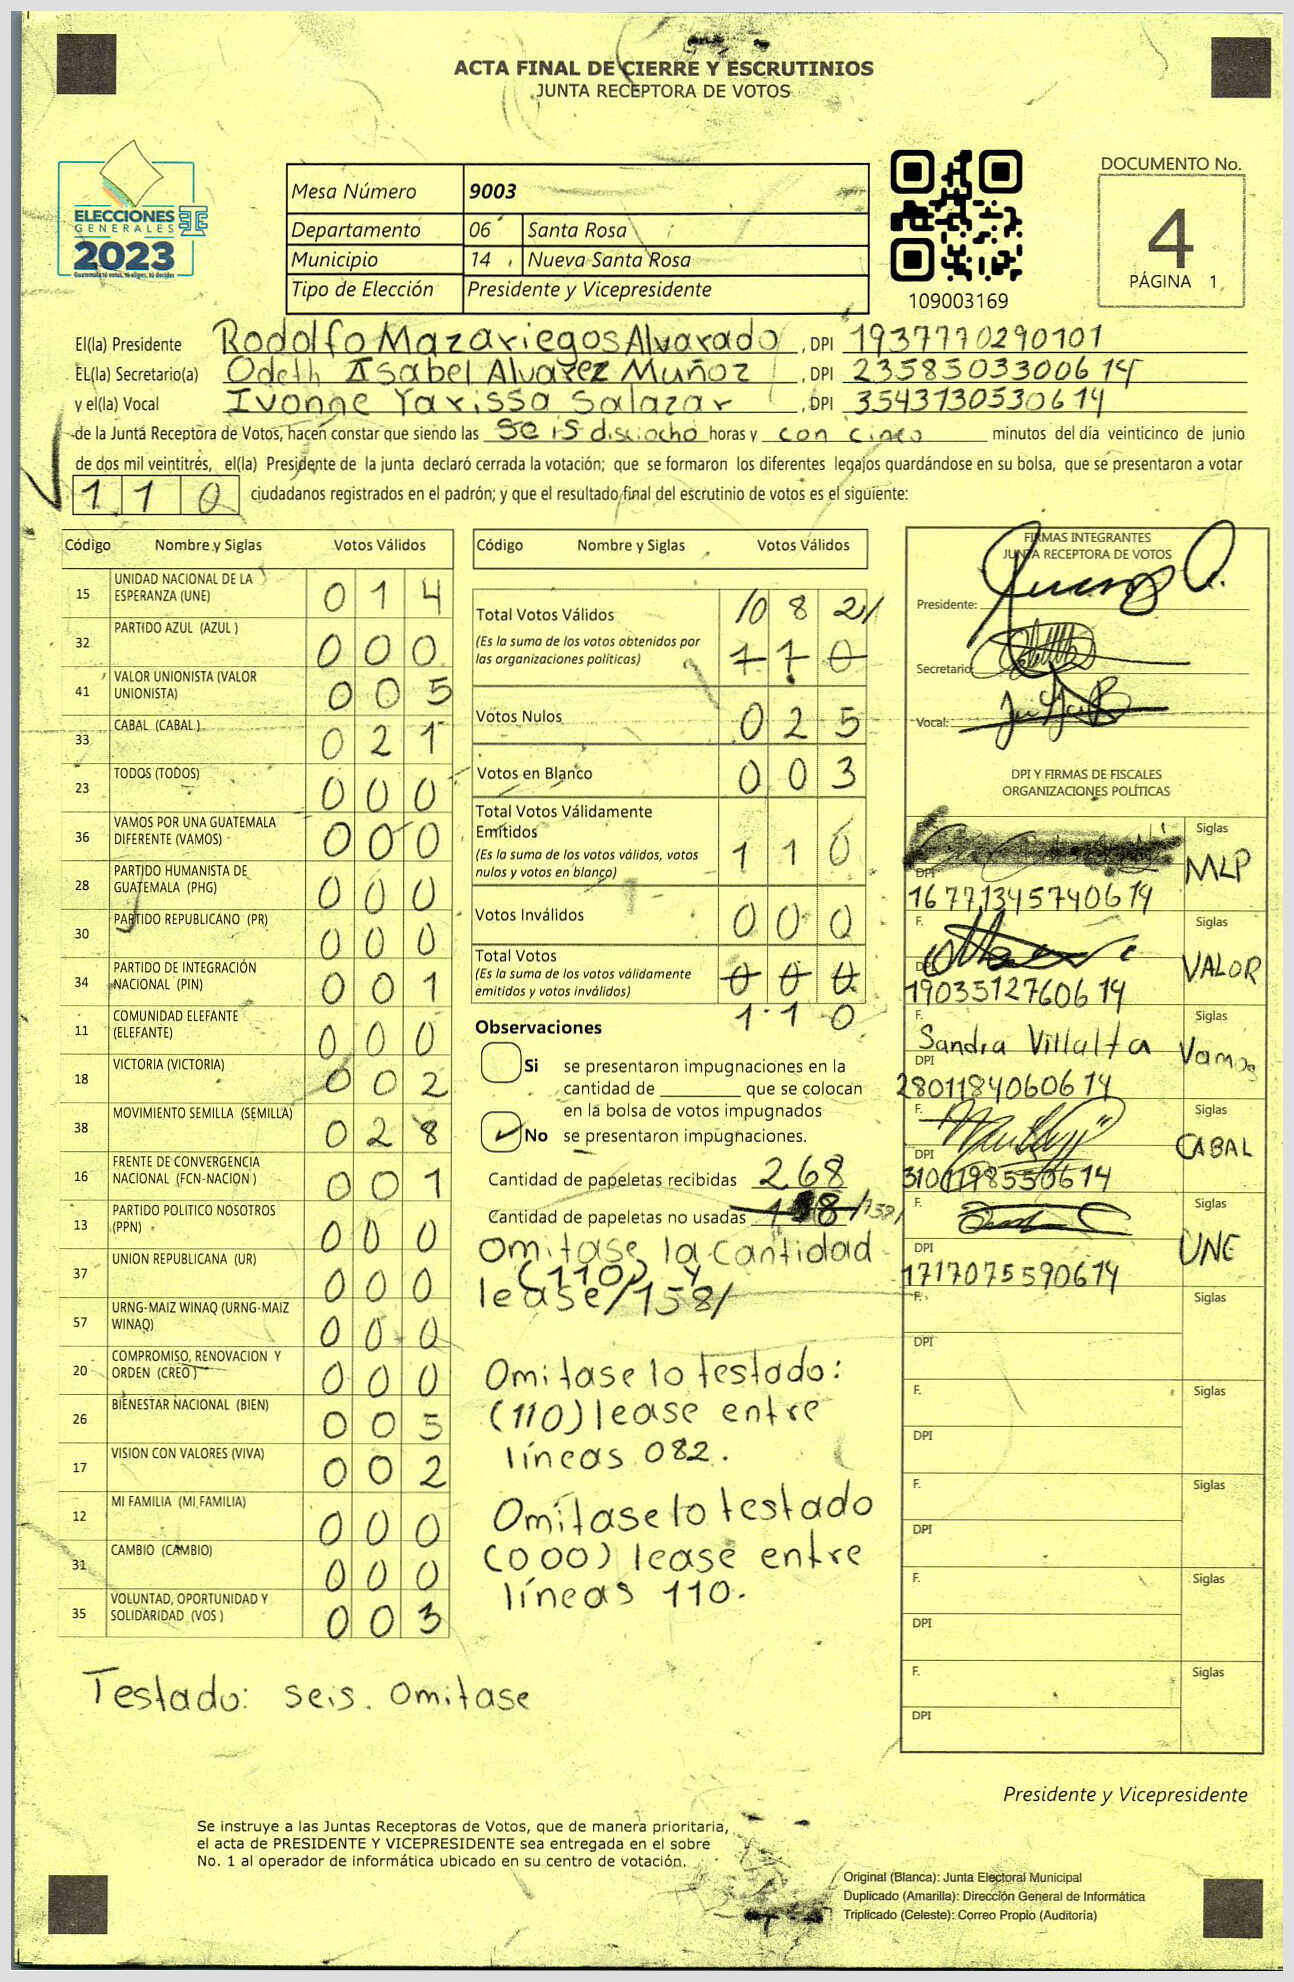 ACTA FINAL DE CIERRE Y ESCRUTINIOS
JUNTA RECEPTORA DE VOTOS
ELECCIONES
GENERALES
2023
Guatemala tú votas, tú eliges, tú decides
Mesa Número 9003
Departamento 06 Santa Rosa
Municipio 14 Nueva Santa Rosa
Tipo de Elección Presidente y Vicepresidente
109003169
DOCUMENTO No.
4
PÁGINA 1
El(la) Presidente Rodolfo Mazariegos Alvarado , DPI 1937770290101
EL(la) Secretario(a) Odeth Isabel Alvarez Muñoz , DPI 2358503300614
y el(la) Vocal Ivonne Yarissa Salazar , DPI 3543730530614
de la Junta Receptora de Votos, hacen constar que siendo las seis disciocho horas y con cinco minutos del día veinticinco de junio
de dos mil veintitrés, el(la) Presidente de la junta declaró cerrada la votación; que se formaron los diferentes legajos guardándose en su bolsa, que se presentaron a votar
110 ciudadanos registrados en el padrón; y que el resultado final del escrutinio de votos es el siguiente:
Código Nombre y Siglas Votos Válidos
15 UNIDAD NACIONAL DE LA ESPERANZA (UNE) 014
32 PARTIDO AZUL (AZUL ) 000
41 VALOR UNIONISTA (VALOR UNIONISTA) 005
33 CABAL (CABAL ) 021
23 TODOS (TODOS) 000
36 VAMOS POR UNA GUATEMALA DIFERENTE (VAMOS) 000
28 PARTIDO HUMANISTA DE GUATEMALA (PHG) 000
30 PARTIDO REPUBLICANO (PR) 000
34 PARTIDO DE INTEGRACIÓN NACIONAL (PIN) 001
11 COMUNIDAD ELEFANTE (ELEFANTE) 000
18 VICTORIA (VICTORIA) 002
38 MOVIMIENTO SEMILLA (SEMILLA) 028
16 FRENTE DE CONVERGENCIA NACIONAL (FCN-NACION ) 001
13 PARTIDO POLITICO NOSOTROS (PPN) 000
37 UNION REPUBLICANA (UR) 000
57 URNG-MAIZ WINAQ (URNG-MAIZ WINAQ) 000
20 COMPROMISO, RENOVACION Y ORDEN (CREO ) 000
26 BIENESTAR NACIONAL (BIEN) 005
17 VISION CON VALORES (VIVA) 002
12 MI FAMILIA (MI FAMILIA) 000
31 CAMBIO (CAMBIO) 000
35 VOLUNTAD, OPORTUNIDAD Y SOLIDARIDAD (VOS ) 003
Testado: seis. Omitase
Código Nombre y Siglas Votos Válidos
Total Votos Válidos /082/
(Es la suma de los votos obtenidos por
las organizaciones políticas) 110
Votos Nulos 025
Votos en Blanco 003
Total Votos Válidamente
Emitidos
(Es la suma de los votos válidos, votos
nulos y votos en blanco) 110
Votos Inválidos 000
Total Votos
(Es la suma de los votos válidamente
emitidos y votos inválidos) 000
110
Observaciones
Si se presentaron impugnaciones en la
cantidad de ________ que se colocan
en la bolsa de votos impugnados
No se presentaron impugnaciones.
Cantidad de papeletas recibidas 268
Cantidad de papeletas no usadas /158/
Omitase la cantidad
(110) y
lease /158/
Omitase lo testado:
(110) lease entre
líneas 082.
Omitase lo testado
(000) lease entre
líneas 110.
FIRMAS INTEGRANTES
JUNTA RECEPTORA DE VOTOS
Presidente:
Secretario:
Vocal:
DPI Y FIRMAS DE FISCALES
ORGANIZACIONES POLÍTICAS
F. Siglas
DPI 16771345740614 MLP
F. Siglas
DPI 1903512760614 VALOR
F. Sandra Villalta Siglas
DPI 2801184060614 Vamos
F. Siglas
DPI 3101198550614 CABAL
F. Siglas
DPI 1717075590614 UNE
F. Siglas
DPI
F. Siglas
DPI
F. Siglas
DPI
F. Siglas
DPI
F. Siglas
DPI
Presidente y Vicepresidente
Se instruye a las Juntas Receptoras de Votos, que de manera prioritaria,
el acta de PRESIDENTE Y VICEPRESIDENTE sea entregada en el sobre
No. 1 al operador de informática ubicado en su centro de votación.
Original (Blanca): Junta Electoral Municipal
Duplicado (Amarilla): Dirección General de Informática
Triplicado (Celeste): Correo Propio (Auditoría)